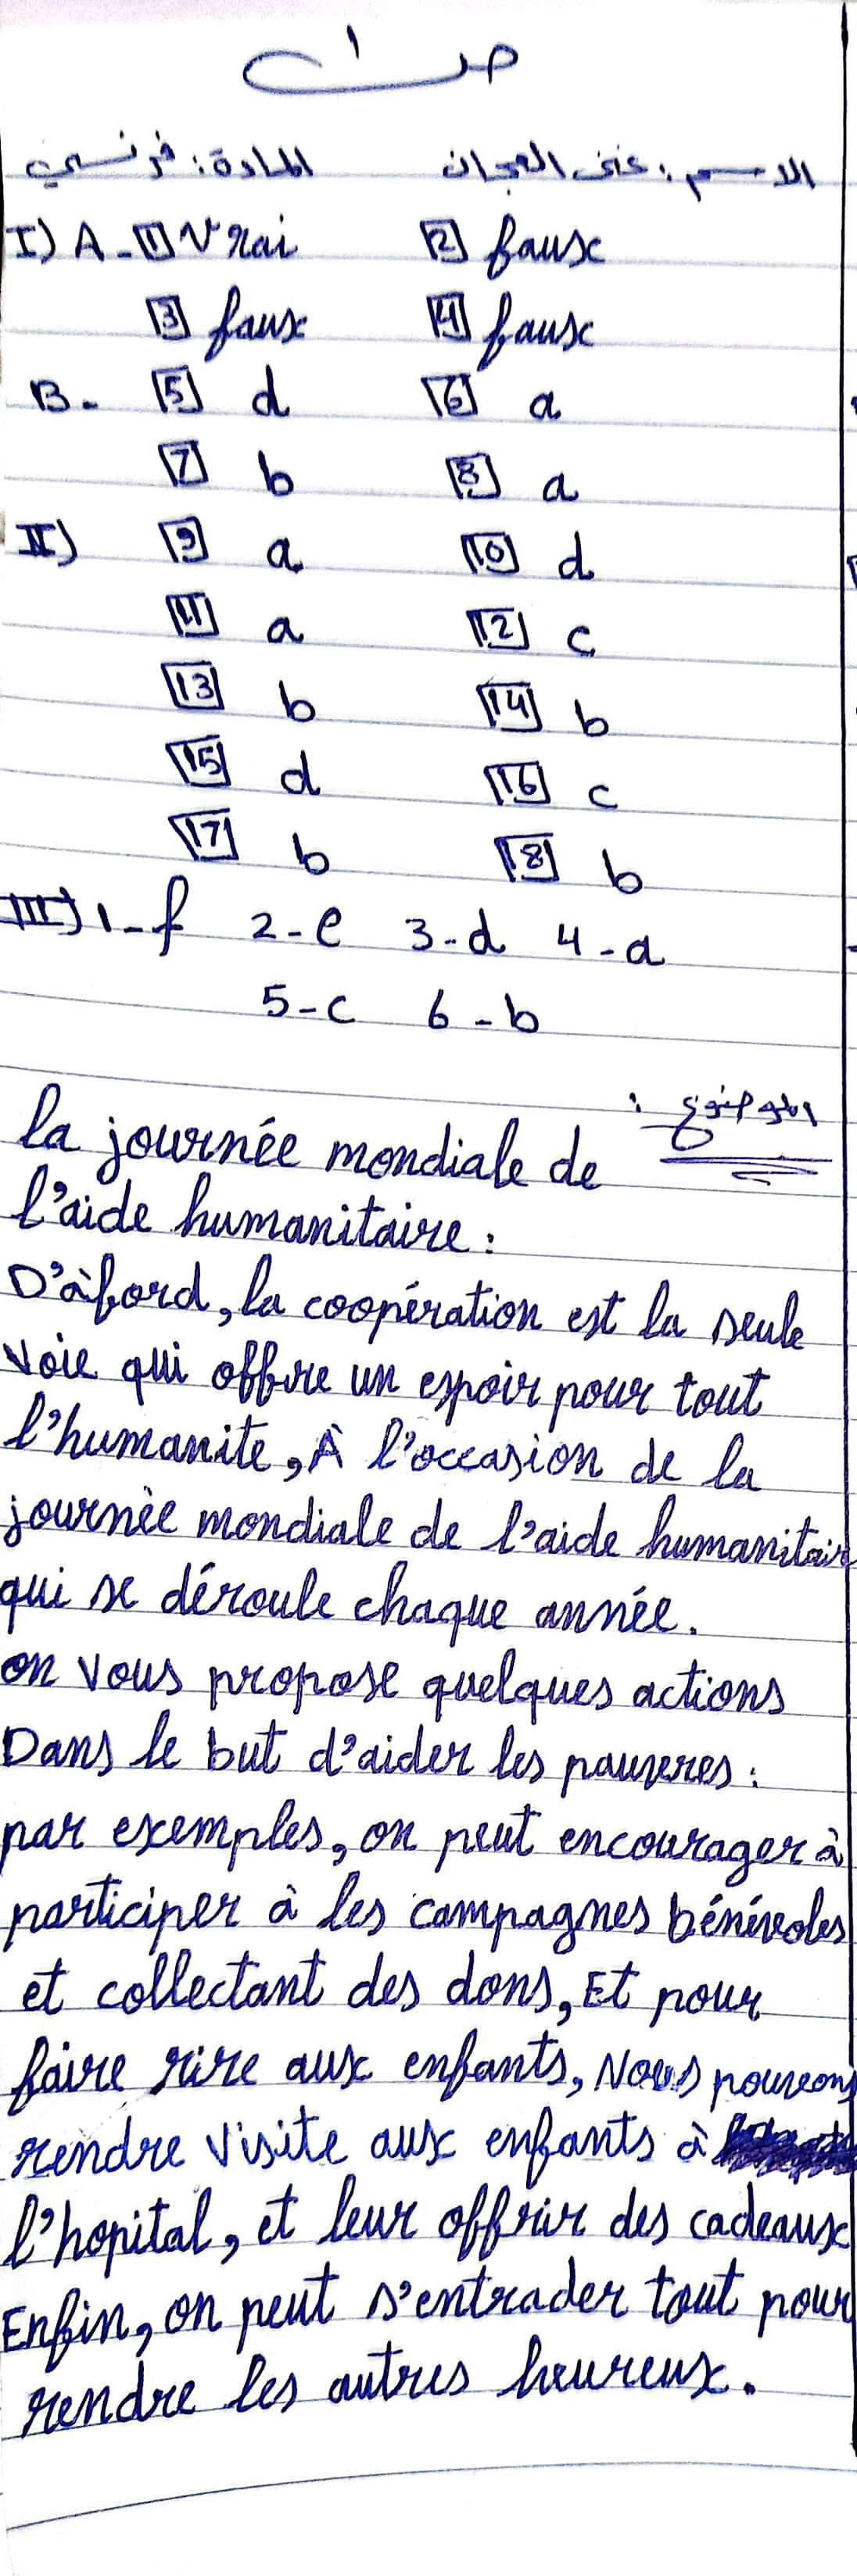 ص ١
الاسم: غنى العجان المادة: فرنسي
I) A - 1 Vrai 2 faux
3 faux 4 faux
B - 5 d 6 a
7 b 8 a
II) 9 a 10 d
11 a 12 c
13 b 14 b
15 d 16 c
17 b 18 b
III) 1-f 2-e 3-d 4-a
5-c 6-b
الموضوع:
la journée mondiale de
l'aide humanitaire:
D'àbord, la coopération est la seule
voie qui offre un espoir pour tout
l'humanite, À l'occasion de la
journèe mondiale de l'aide humanitair
qui se déroule chaque année.
on vous propose quelques actions
Dans le but d'aider les pauvres:
par exemples, on peut encourager à
participer à les campagnes bénévoles
et collectant des dons, Et pour
faire rire aux enfants, Nous pouvons
rendre visite aux enfants à
l'hopital, et leur offrir des cadeaux
Enfin, on peut s'entrader tout pour
rendre les autres heureux.